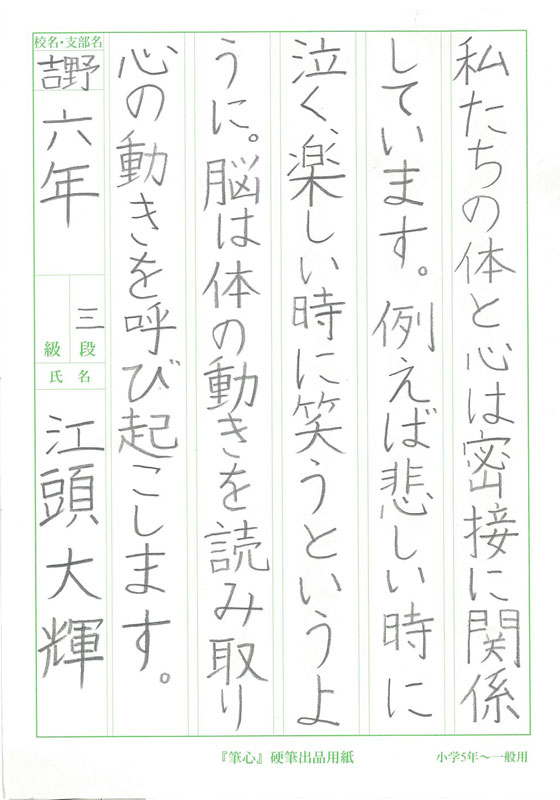 私たちの体と心は密接に関係
しています。例えば悲しい時に
泣く、楽しい時に笑うというよ
うに。脳は体の動きを読み取り
心の動きを呼び起こします。
校名・支部名
吉野
六年
三
段
級
氏名
江頭大輝
『筆心』硬筆出品用紙
小学5年～一般用